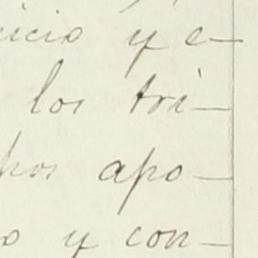 icio y e-
los tri-
hos apo-
o y con-